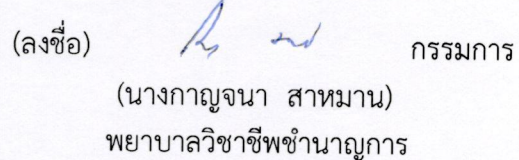 (ลงชื่อ) กรรมการ
(นางกาญจนา สาหมาน)
พยาบาลวิชาชีพชำนาญการ